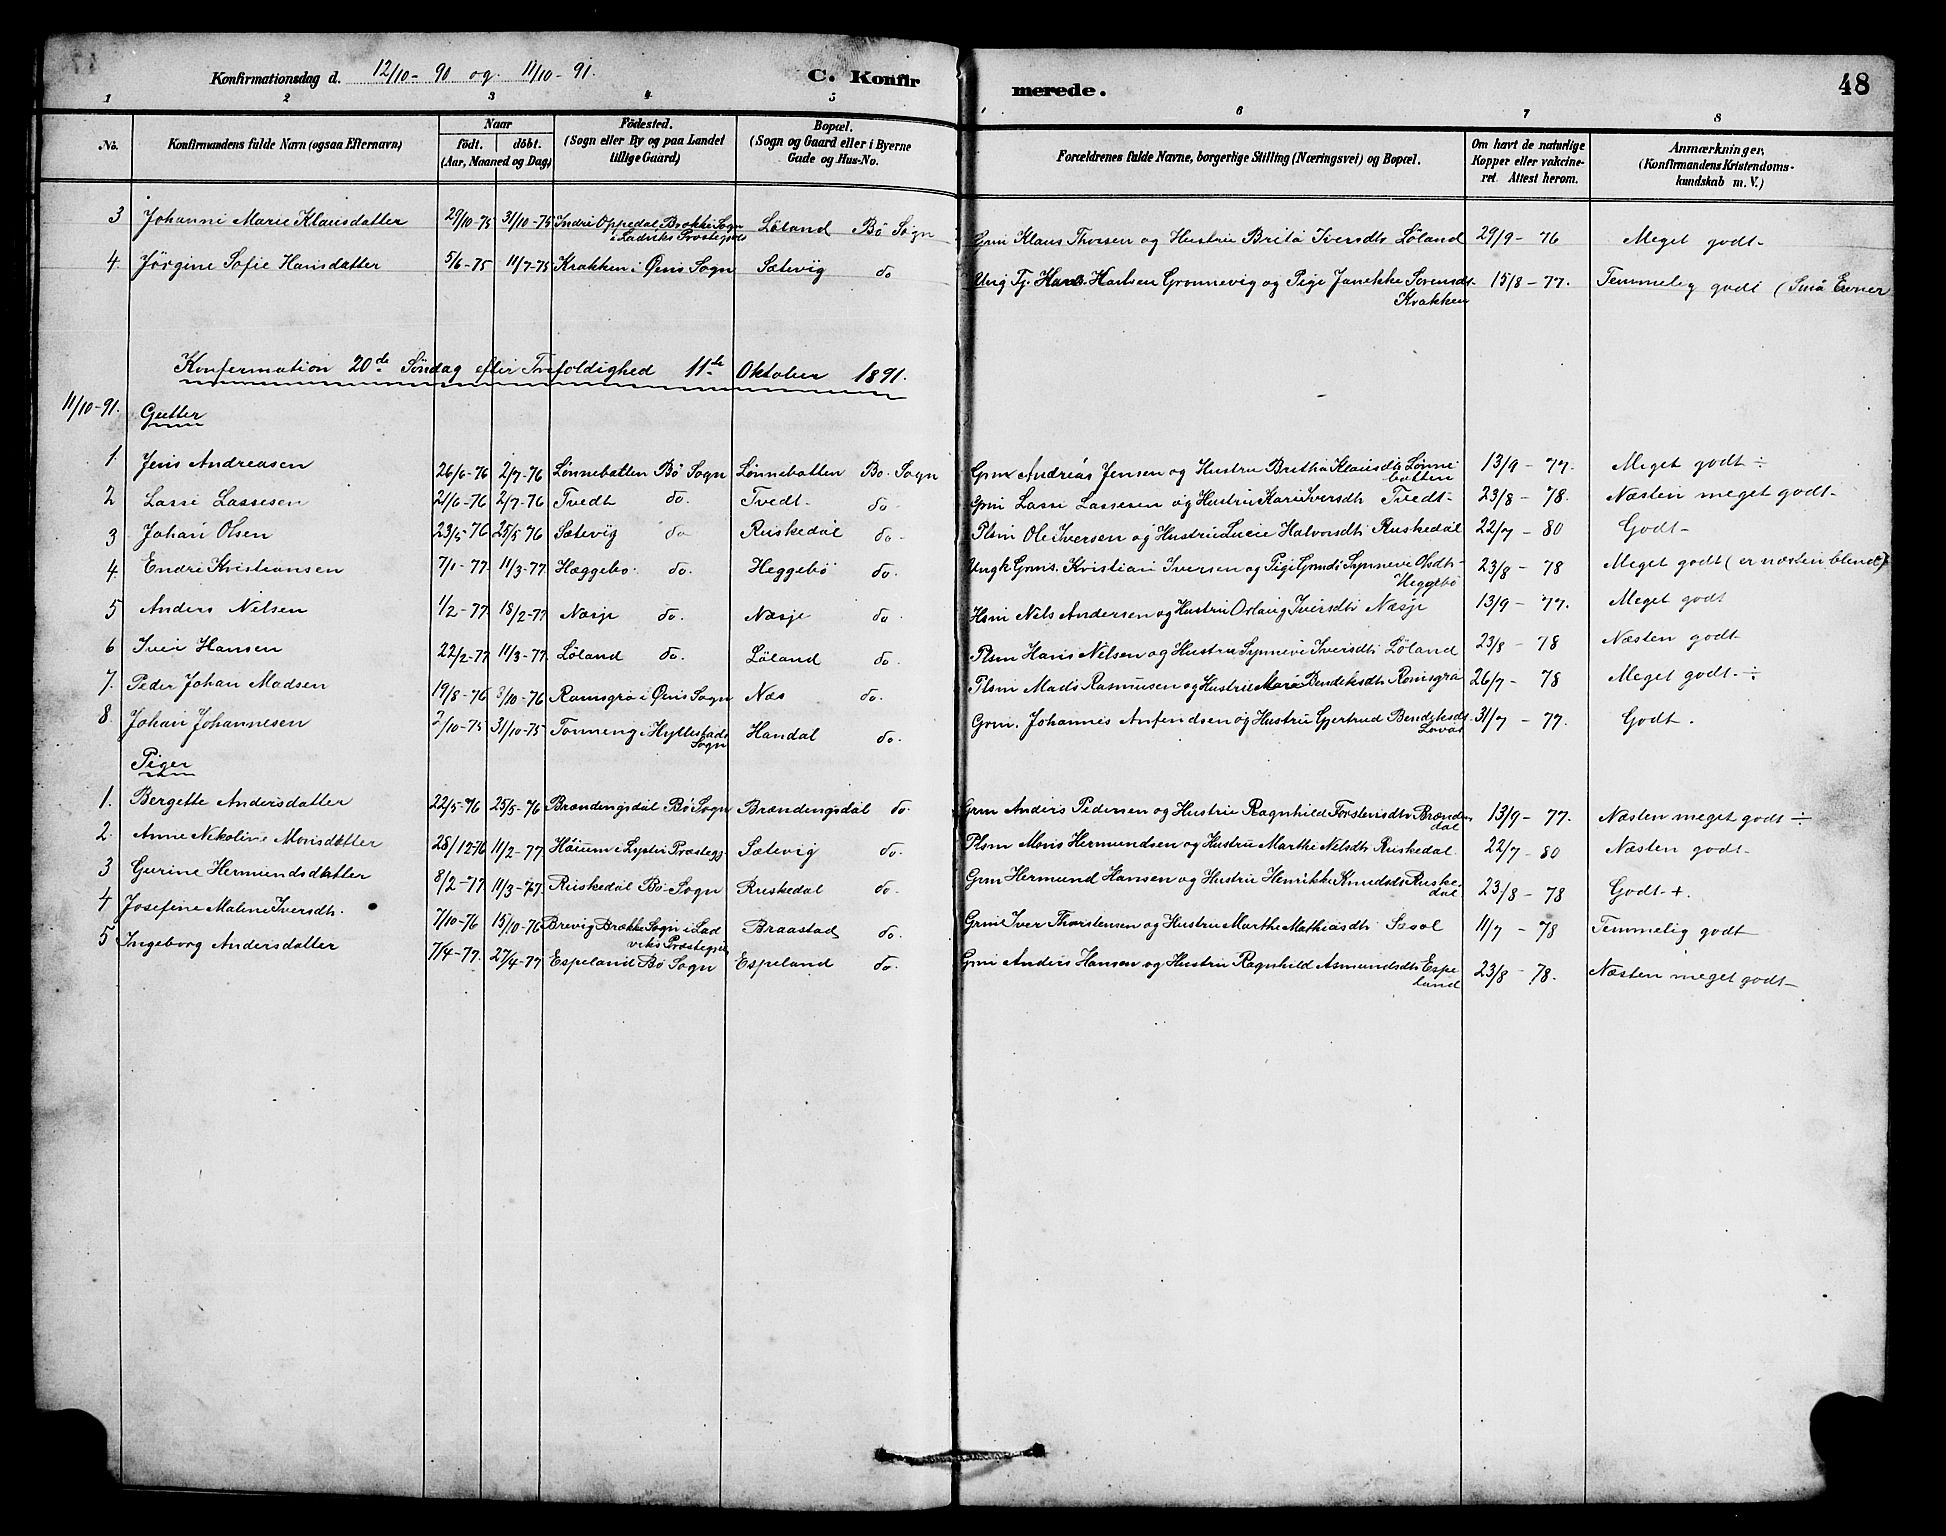 Konfirmationsdag d. 12/10 - 90 og 11/10 - 91. C. Konfir merede. 48
1 2 3 4 5 6 7 8
No. Konfirmandens fulde Navn (ogsaa Efternavn) Naar födt. döbt. (Aar, Maaned og Dag) Födested. (Sogn eller By og paa Landet tillige Gaard) Bopæl. (Sogn og Gaard eller i Byerne Gade og Hus-No. Forældrenes fulde Navne, borgerlige Stilling (Næringsvei) og Bopæl. Om havt de naturlige Kopper eller vakcineret. Attest herom. Anmærkninger, (Konfirmandens Kristendomskundskab m. V.)
3 Johanne Marie Klausdatter 29/10-75 31/10-75 Indre Oppedal Brække Sogn i Ladviks Præstegjeld Löland Bö Sogn Grm Klaus Thorsen og Hustru Brita Iversdtr Löland 29/9 - 76 Meget godt -
4. Jörgine Sofie Hansdatter 5/6-75 11/7-75 Krakken i Öens Sogn Sætevig do Ung Tj. Hans Hansen Grønnevig og Pige Janekke Sorensdt. Krakken 15/8 - 77. Temmelig godt (Smá Evner
Konfermation 20de Söndag efter Trefoldighed 11te Oktober 1891.
11/10-91. Gutter
1. Jens Andreasen 26/6-76 2/7-76 Lønnebotten Bö Sogn Lønnebotten Bo. Sogn Grm Andreas Jensen og Hustru Britha Klausdtr Lønnebotten 13/9 - 77. Meget godt ÷
2 Lasse Lassesen 21/6-76 2/7-76 Tvedt do. Tvedt - do. Grm Lasse Lassesen og Hustru Kari Iversdtr Tvedt - 23/8 - 78. Næsten meget godt -
3 Johan Olsen 23/5-76 25/5 76 Sætevig do Ruskedal do. Plsm Ole Iversen og Hustru Lucie Halvorsdtr Ruskedal 22/7 - 80 Godt -
4. Endre Kristiansen 7/1-77. 11/3-77 Hæggebo. do. Heggebö do. Ungk Grms. Kristian Iversen og Pige Grmds Synneve Olsdtr - Heggebö 23/8 - 78 Meget godt (er næsten blend)
5 Anders Nelsen 1/2-77 18/2-77 Næsje do. Næsje do. Hsm Nels Andersen og Hustru Orlaug Iversdtr Næsje 13/9 - 77. Meget godt
6 Iver Hansen 22/2-77 11/3-77. Löland do. Löland do. Plsm Hans Nelsen og Hustru Synneve Iversdtr Löland 23/8 - 78 Næsten godt
7. Peder Johan Madsen 19/8-76 8/10-76 Ramsgra i Öens Sogn Næs do. Plsm Mads Rasmusen og Hustru Mari Bendiksdtr Romsgra 26/7 - 78 Meget godt. ÷
8. Johan Johannesen 2/10-75 31/10-75 Tonneng i Hyllestads Sogn Handal do. Grm. Johannes Anfendsen og Hustru Gjertrud Bendiksdt. Lovas 31/7 - 77. Godt.
Piger
1. Bergette Andersdatter 22/5-76 25/5-76 Brændengsdal Bö Sogn Brændengsdal do. Grm Anders Pedersen og Hustru Ragnhild Torstensdtr Brændendal 13/9 - 77. Næsten meget godt ÷
2. Anne Nekoline Monsdatter 28/12-76 11/2-77 Höium i Lyster Præstegj. Sætevig do. Plsm Mons Hermundsen og Hustru Marthe Nelsdtr Ruskedal. 22/7 - 80 Næsten godt -
3 Gurine Hermundsdatter 8/2-77 11/3-77. Ruskedal Bö Sogn Ruskedal do. Grm Hermund Hanssen og Hustru Henrikke Knudsdtr Ruskedal 23/8 - 78 Godt +.
4 Josefine Maline Iversdtr. 7/10-76 15/10-76 Brevig Brække Sogn i Ladviks Præstegjeld Braastad do. Grm Iver Thorstensen og Hustru Marthe Mathiasdtr Sæsol 11/7 - 78 Temmelig godt -
5 Ingeborg Andersdatter 7/4-77. 27/4-77 Espeland Bö Sogn Espeland do. Grm Anders Hansen og Hustru Ragnhild Asmundsdtr Espeland 23/8 - 78. Næsten meget godt -